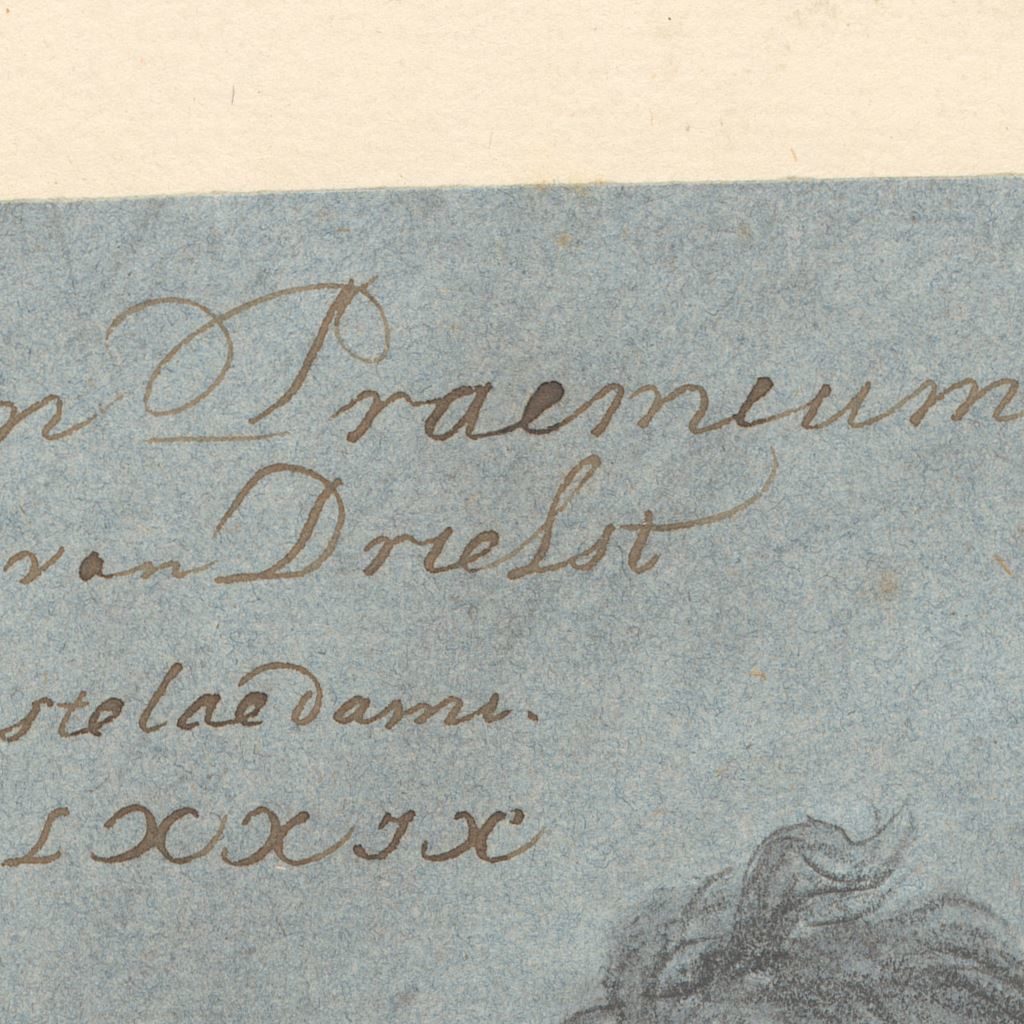 n Praemium
van Drielst
stelaedami.
LXXIX